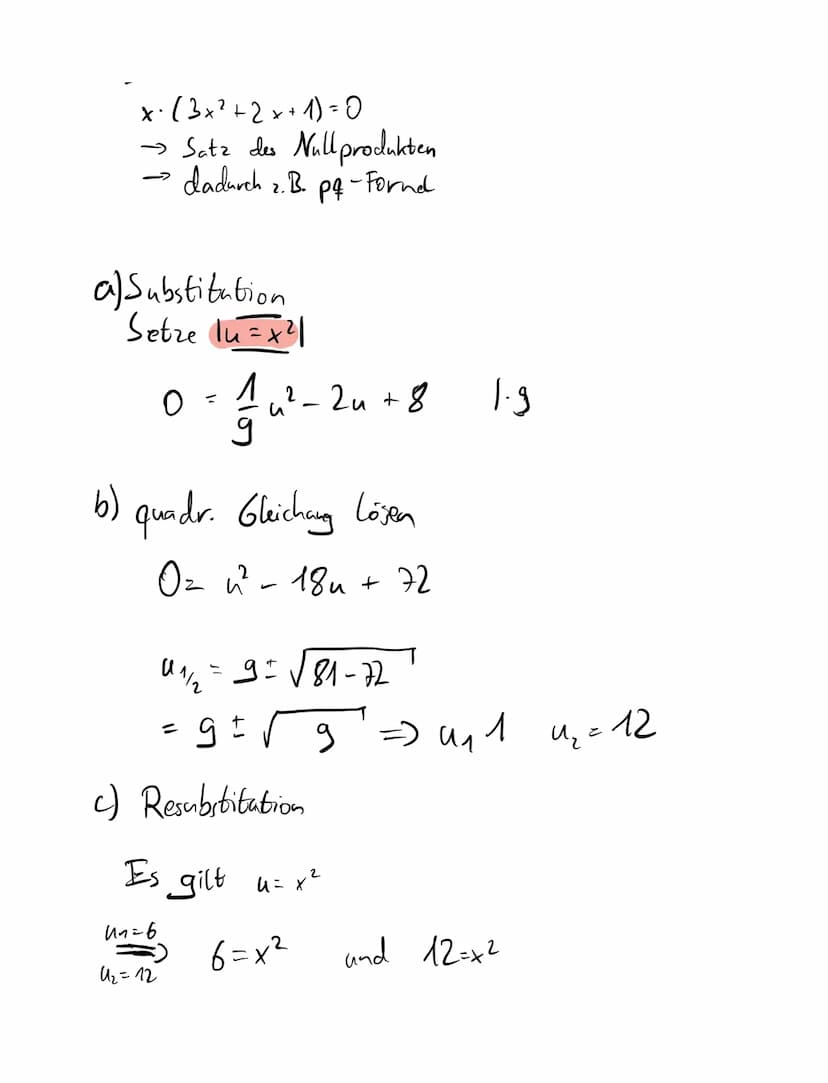 x·(3x²+2x+1)=0
→ Satz des Nullprodukten
→ dadurch z.B. pq-Formel
a) Substitution
Setze |u=x²|
0 = 1/9 u² - 2u + 8 |·9
b) quadr. Gleichung lösen
0= u² - 18u + 72
u1/2 = 9 ± √81-72
= 9 ± √9 => u₁ 1 u₂ = 12
c) Resubstitution
Es gilt u= x²
u₁=6
=> 6=x² und 12=x²
u₂=12